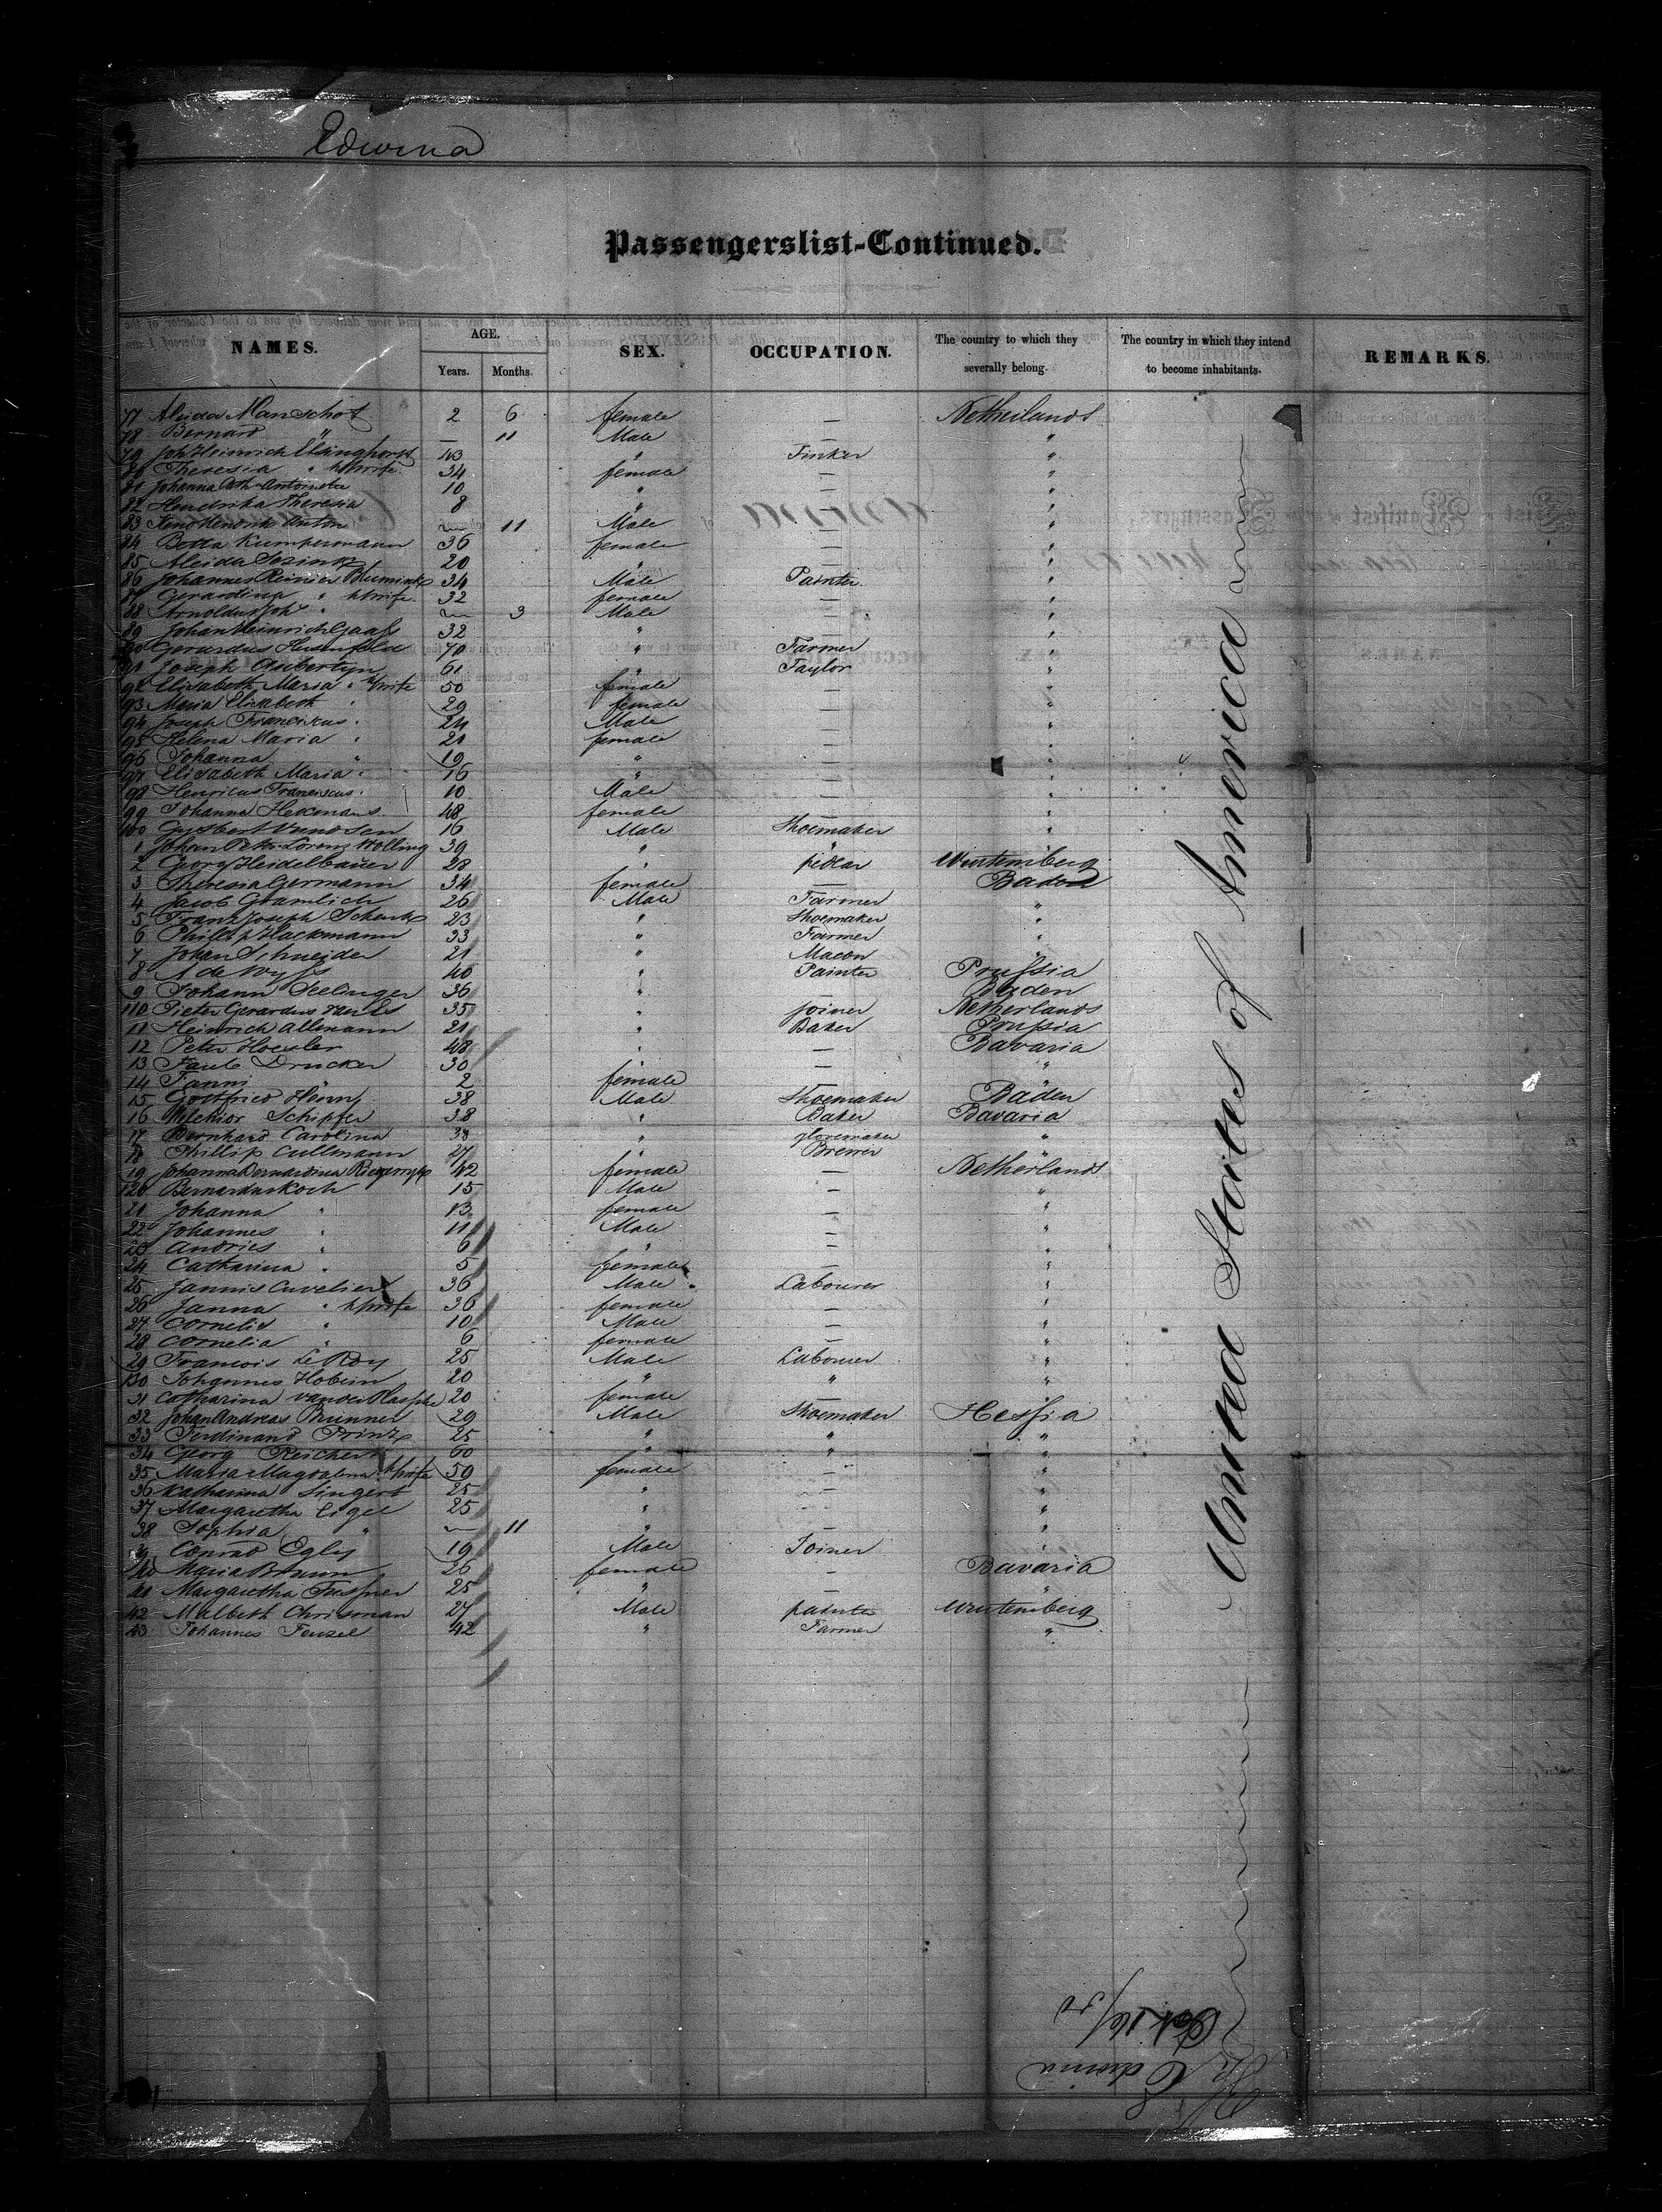 Edwina
Passengerslist-Continued.
NAMES. AGE. SEX. OCCUPATION. The country to which they severally belong. The country in which they intend to become inhabitants. REMARKS.
Years. Months.
77 Aleida Manschot 2 6 female — Netherlands
78 Bernard " — 11 Male — "
79 Joh Heinrich Elsinghorst 43 " Tinker "
80 Theresia " h/wife 34 female — "
81 Johanna Cath Antonetta 10 " — "
82 Hendrika Theresia 8 " — "
83 Hendrik Anton — 11 Male — "
84 Betta Kumpermann 36 female — "
85 Aleida 20 " — "
86 Johannes Reinier Bluminks 34 Male Painter "
87 Gerardina " h/wife 32 female — "
88 Arnoldus Joh " — 3 Male — "
89 Johan Heinrich Gaafs 32 " — "
90 Gerardus 70 " Farmer "
91 Joseph Aubertyn 61 " Taylor "
92 Elisabeth Maria " h/wife 50 female — "
93 Maria Elisabeth " 29 female — "
94 Joseph Franciskus " 24 Male — "
95 Helena Maria " 21 female — "
96 Johanna " 19 " — "
97 Elisabeth Maria " 16 " — "
98 Henricus Franciscus " 10 Male — "
99 Johanna Hekmans 48 female — "
100 Gysbert 16 Male Shoemaker "
1 Johan Peter Lorenz Wolling 39 " " "
2 Georg Heidelbauer 28 " pedlar Wurtemberg
3 Theresia Germann 34 female — Baden
4 Jacob Gramlich 26 Male Farmer "
5 Franz Joseph Schenk 23 " Shoemaker "
6 Phillip Hackmann 33 " Farmer "
7 Johan Schneider 21 " Macon "
8 A de Wyss 40 " Painter Prussia
9 Johann Seelinger 36 " " Baden
110 Pieter Gerardus 35 " joiner Netherlands
11 Heinrich Allmann 21 " Baker Prussia
12 Peter Hoesler 48 " — Bavaria
13 Drucker 30 " — "
14 Fanni 2 female — "
15 Gottfried 38 Male Shoemaker Baden
16 Melchior Schipfer 38 " Baker Bavaria
17 Bernhard Carolina 38 " glovemaker "
18 Phillip Cullmann 27 " Brewer "
19 Johanna Bernardina 42 female — Netherlands
120 Bernardus Koch 15 Male — "
21 Johanna " 13 female — "
22 Johannes " 11 Male — "
23 Andries " 6 " — "
24 Catharina " 5 female — "
25 Jannis Cuvelier 36 Male Labourer "
26 Janna " h/wife 36 female — "
27 Cornelis " 10 Male — "
28 Cornelia " 6 female — "
29 Francois Le Roy 25 Male Labourer "
130 Johannes Hobein 20 " " "
31 Catharina van der Plassche 20 female — "
32 Johan Andreas Brunner 29 Male Shoemaker Hessia
33 Ferdinand Prinz 25 " " "
34 Georg Reichert 60 " " "
35 Maria Magdalena h/wife 59 female — "
36 Katharina Singert 25 " — "
37 Margaretha Eigel 25 " — "
38 Sophia " — 11 " — "
39 Conrad Egly 19 Male Joiner "
140 Maria Brunn 26 female — Bavaria
41 Margaretha Fussner 25 " — "
42 Malbeth Chrisman 27 Male painter Wurtemberg
43 Johannes Fenzel 42 " Farmer "
United States of America
Edwina